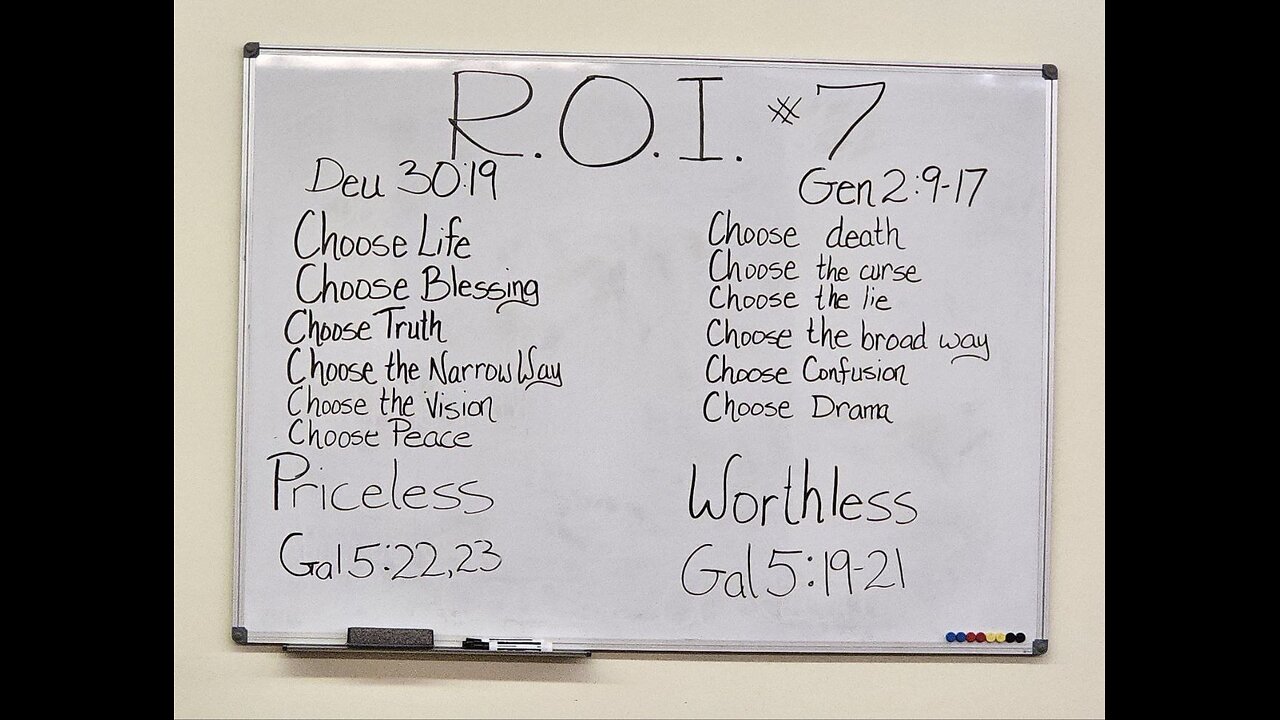 R.O.I. #7
Deu 30:19
Choose Life
Choose Blessing
Choose Truth
Choose the Narrow Way
Choose the Vision
Choose Peace
Priceless
Gal 5:22,23
Gen 2:9-17
Choose death
Choose the curse
Choose the lie
Choose the broad way
Choose Confusion
Choose Drama
Worthless
Gal 5:19-21